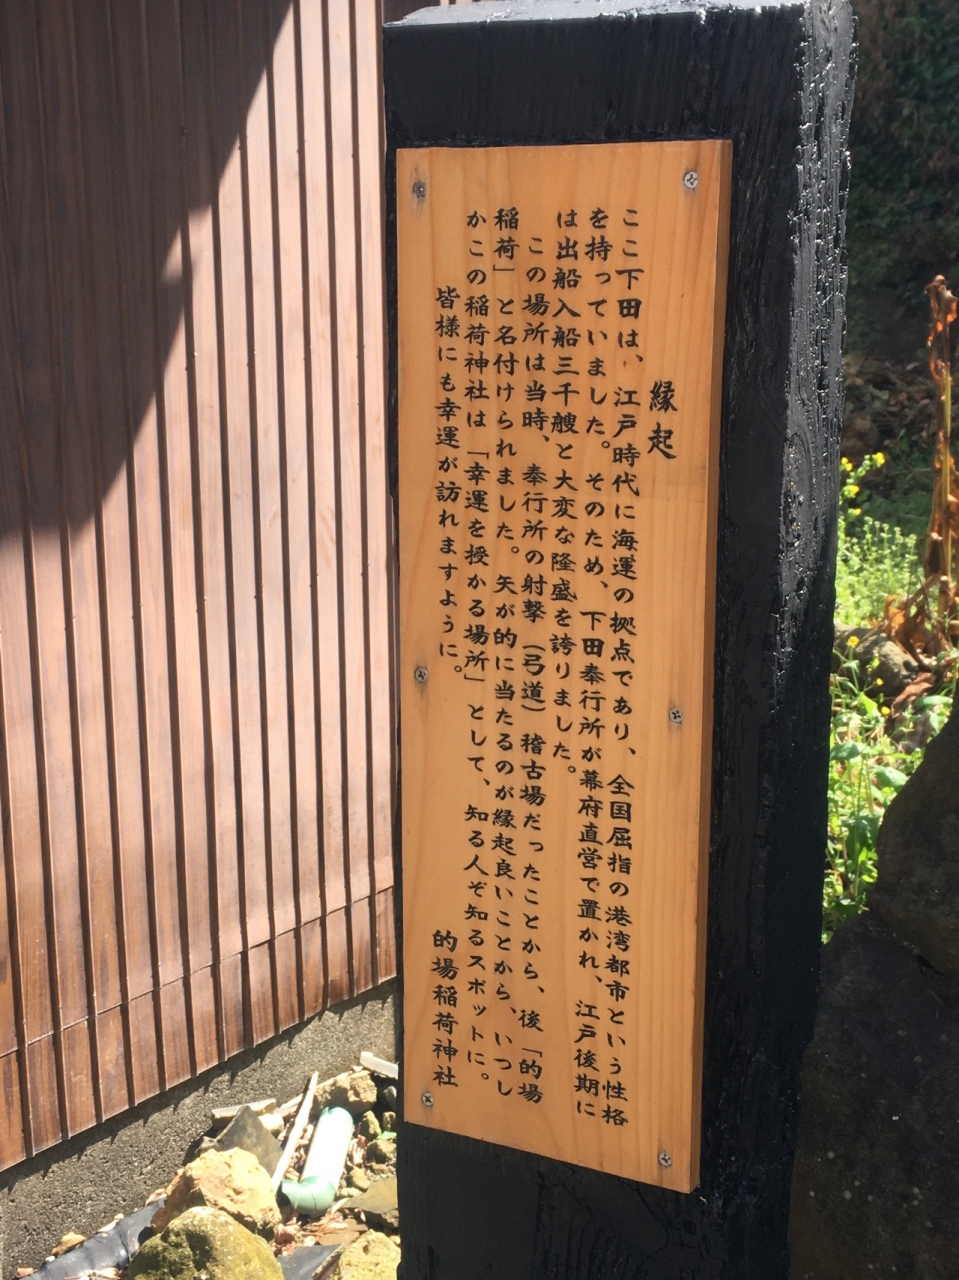 縁起
ここ下田は、江戸時代に海運の拠点であり、全国屈指の港湾都市という性格
を持っていました。そのため、下田奉行所が幕府直営で置かれ、江戸後期に
は出船入船三千艘と大変な隆盛を誇りました。
この場所は当時、奉行所の射撃（弓道）稽古場だったことから、後「的場
稲荷」と名付けられました。矢が的に当たるのが縁起良いことから、いつし
かこの稲荷神社は「幸運を授かる場所」として、知る人ぞ知るスポットに。
皆様にも幸運が訪れますように。
的場稲荷神社